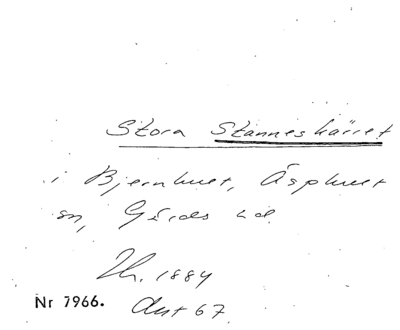 Stora Stanneskärret
i Bjernhult, Äsphult
sn, Gärds hd
Th. 1884
Nr 7966. Avst 67